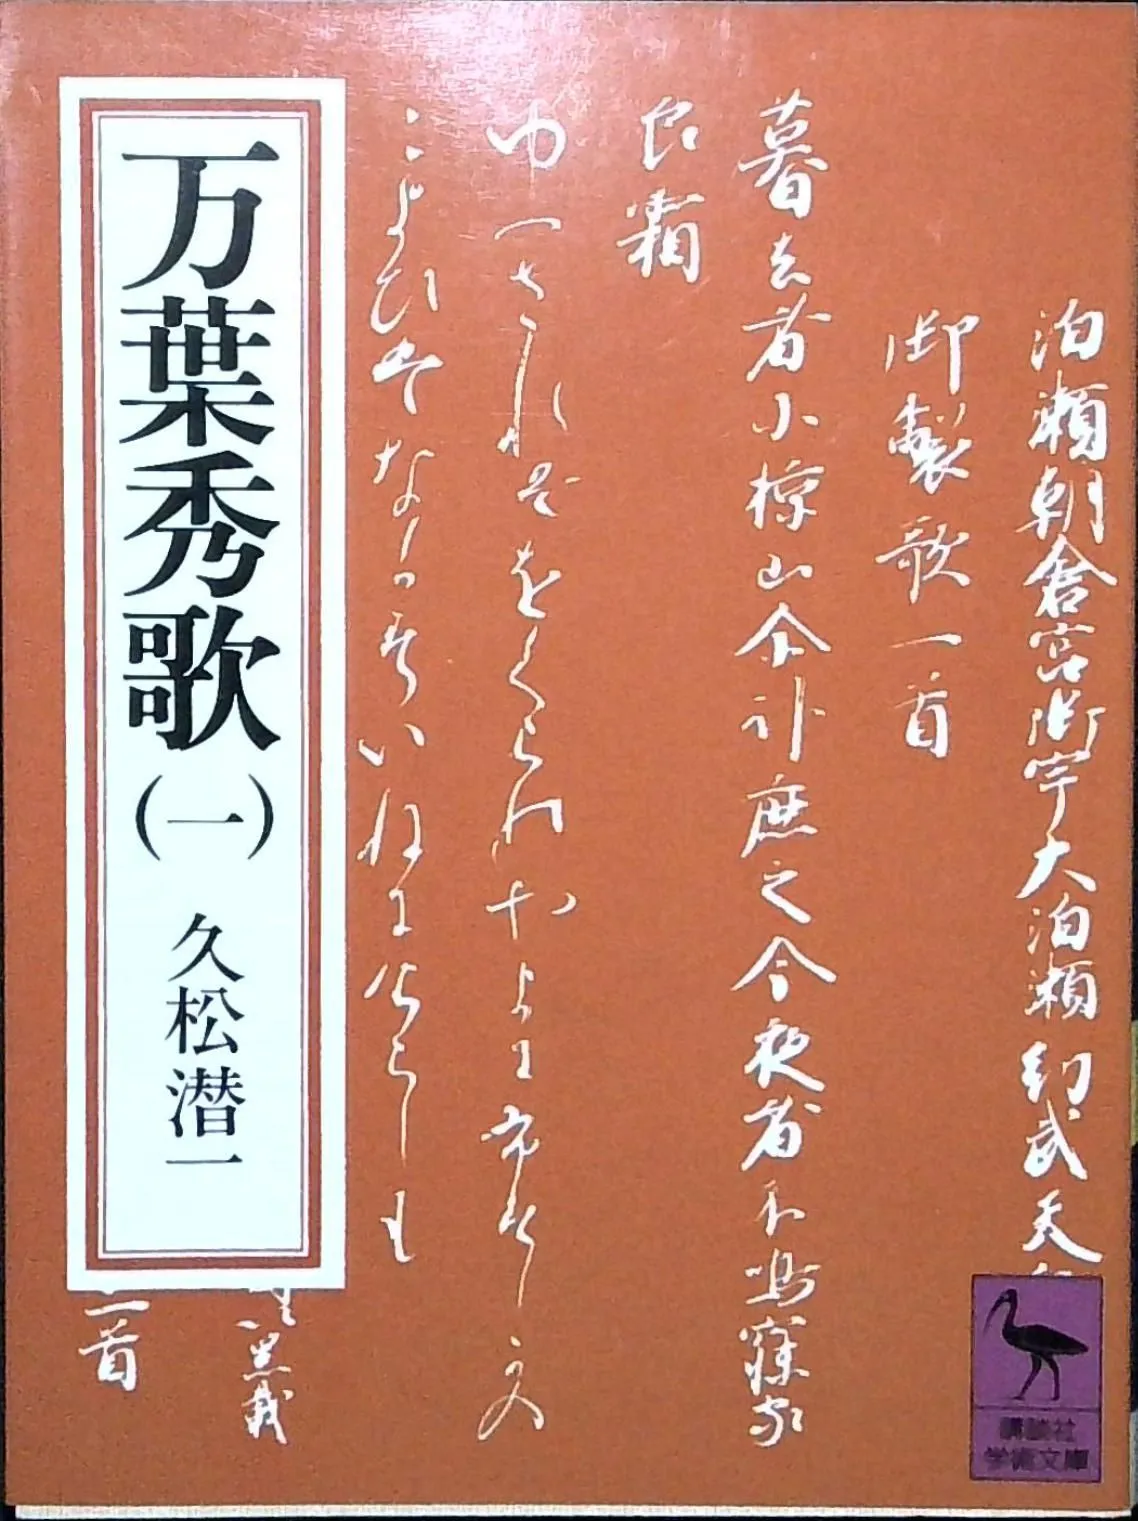 万葉秀歌(一)
久松潜一
泊瀬朝倉宮御宇大泊瀬幼武天
御製歌一首
暮去者小椋山尓臥鹿之今夜者不鳴寐家
良霜
ゆふされはをくらのやまにふすしかの
こよひはなかすいねにけらしも
二首
講談社
学術文庫